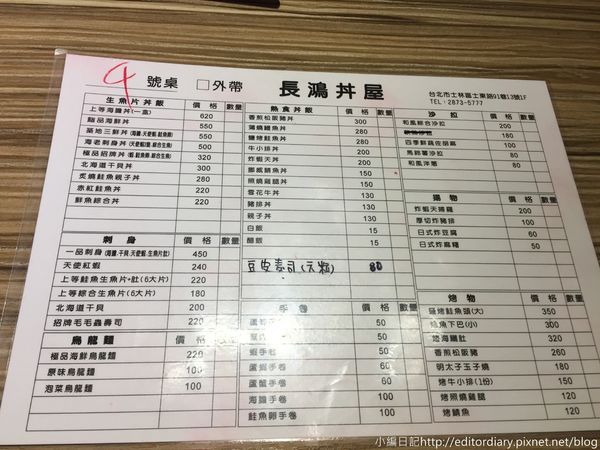 4 號桌 □外帶 長鴻丼屋
台北市士林區士東路91巷13號1F
TEL：2873-5777
生魚片丼飯 價格 數量
上等海膽丼(一盒) 620
極品海鮮丼 550
築地三鮮丼 550
海老刺身丼 500
極品招牌丼 320
北海道干貝丼 300
炙燒鮭魚親子丼 280
赤紅鮭魚丼 220
鮮魚綜合丼 220
刺身 價格 數量
一品刺身 450
天使紅蝦 240
上等鮭魚生魚片+肚(6大片) 220
上等綜合生魚片(6大片) 180
北海道干貝 200
招牌毛毛蟲壽司 220
烏龍麵 價格 數量
極品海鮮烏龍麵 220
原味烏龍麵 100
泡菜烏龍麵 100
熱食丼飯 價格 數量
香煎松阪豬丼 300
蒲燒鰻魚丼 280
鹽烤鮭魚丼 280
牛小排丼 200
炸蝦天丼 200
挪威鯖魚丼 150
照燒雞腿丼 150
雪花牛丼 130
豬排丼 130
親子丼 130
白飯 15
醋飯 15
豆皮壽司(六粒) 80
手卷 價格 數量
50
50
蝦手卷 50
蘆蝦手卷 50
蘆蟹手卷 60
海膽手卷 100
鮭魚卵手卷 100
沙拉 價格 數量
和風綜合沙拉 200
180
四季鮮蔬佐胡麻 100
馬鈴薯沙拉 100
和風洋蔥 60
揚物 價格 數量
炸蝦天婦羅 200
厚切炸豬排 100
日式炸豆腐 60
日式炸麻糬 50
烤物 價格 數量
鹽烤鮭魚頭(大) 350
魚下巴(小) 300
烤海鱺肚 320
香煎松阪豬 260
明太子玉子燒 180
烤牛小排(1份) 150
烤照燒雞腿 120
烤鯖魚 120
小編日記http://editordiary.pixnet.net/blog